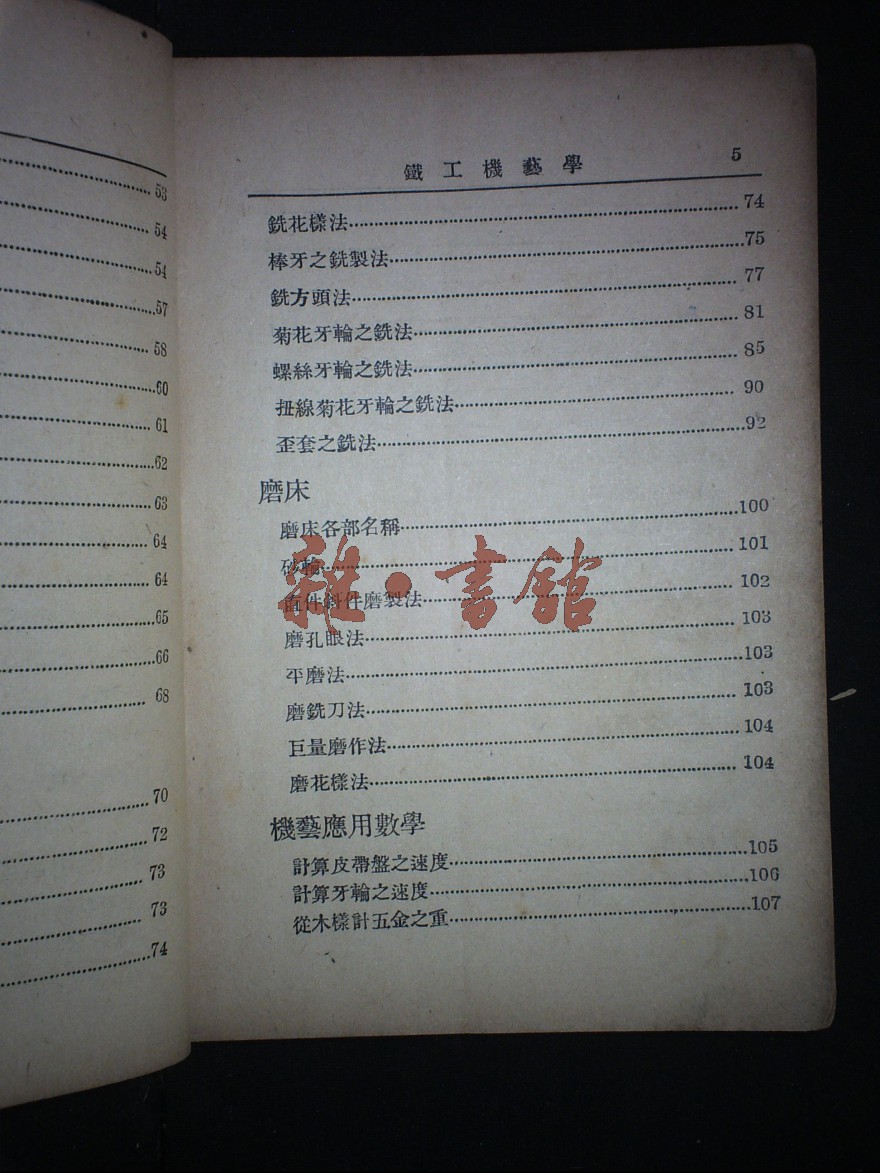 53
54
54
57
58
60
61
62
63
64
64
65
66
68
70
72
73
73
74
鐵工機藝學 5
銑花樣法 74
棒牙之銑製法 75
銑方頭法 77
菊花牙輪之銑法 81
螺絲牙輪之銑法 85
扭線菊花牙輪之銑法 90
歪套之銑法 92
磨床
磨床各部名稱 100
砂輪 101
直件斜件磨製法 102
磨孔眼法 103
平磨法 103
磨銑刀法 103
巨量磨作法 104
磨花樣法 104
機藝應用數學
計算皮帶盤之速度 105
計算牙輪之速度 106
從木樣計五金之重 107
雜·書館